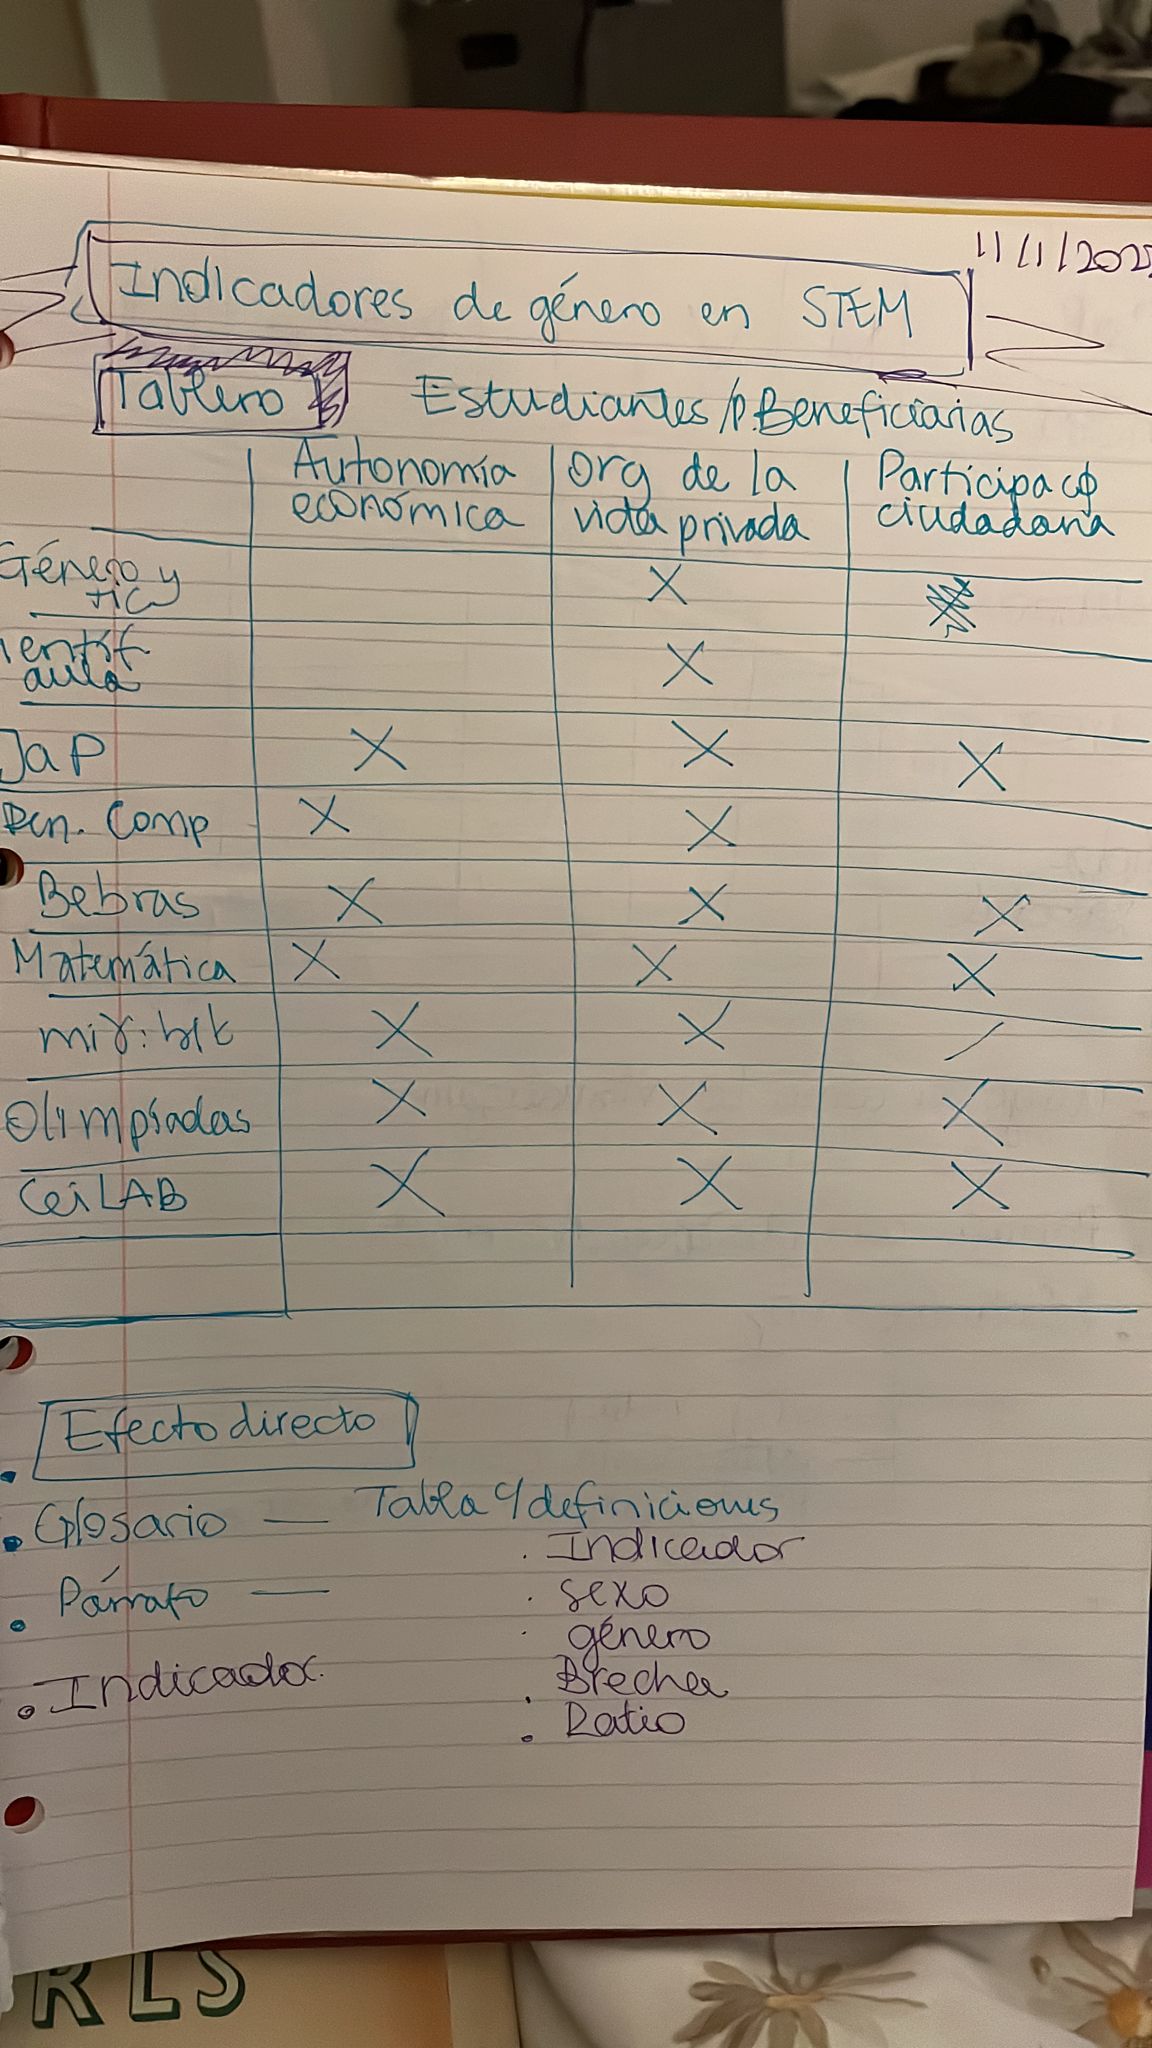 11/1/202
Indicadores de género en STEM
Tablero Estudiantes/p.Beneficiarias
Autonomía económica | Org de la vida privada | Participacϕ ciudadana
Género y TIC | | X |
ientíf. aula | | X |
JaP | X | X | X
Pen. Comp | X | X |
Bebras | X | X | X
Matemática | X | X | X
mir:bit | X | X | /
Olimpíadas | X | X | X
CeiLAB | X | X | X
Efecto directo
• Glosario — Tabla c/definiciones
. Indicador
• Párrafo —
. sexo
. género
• Indicador.
. Brecha
. Ratio
RLS